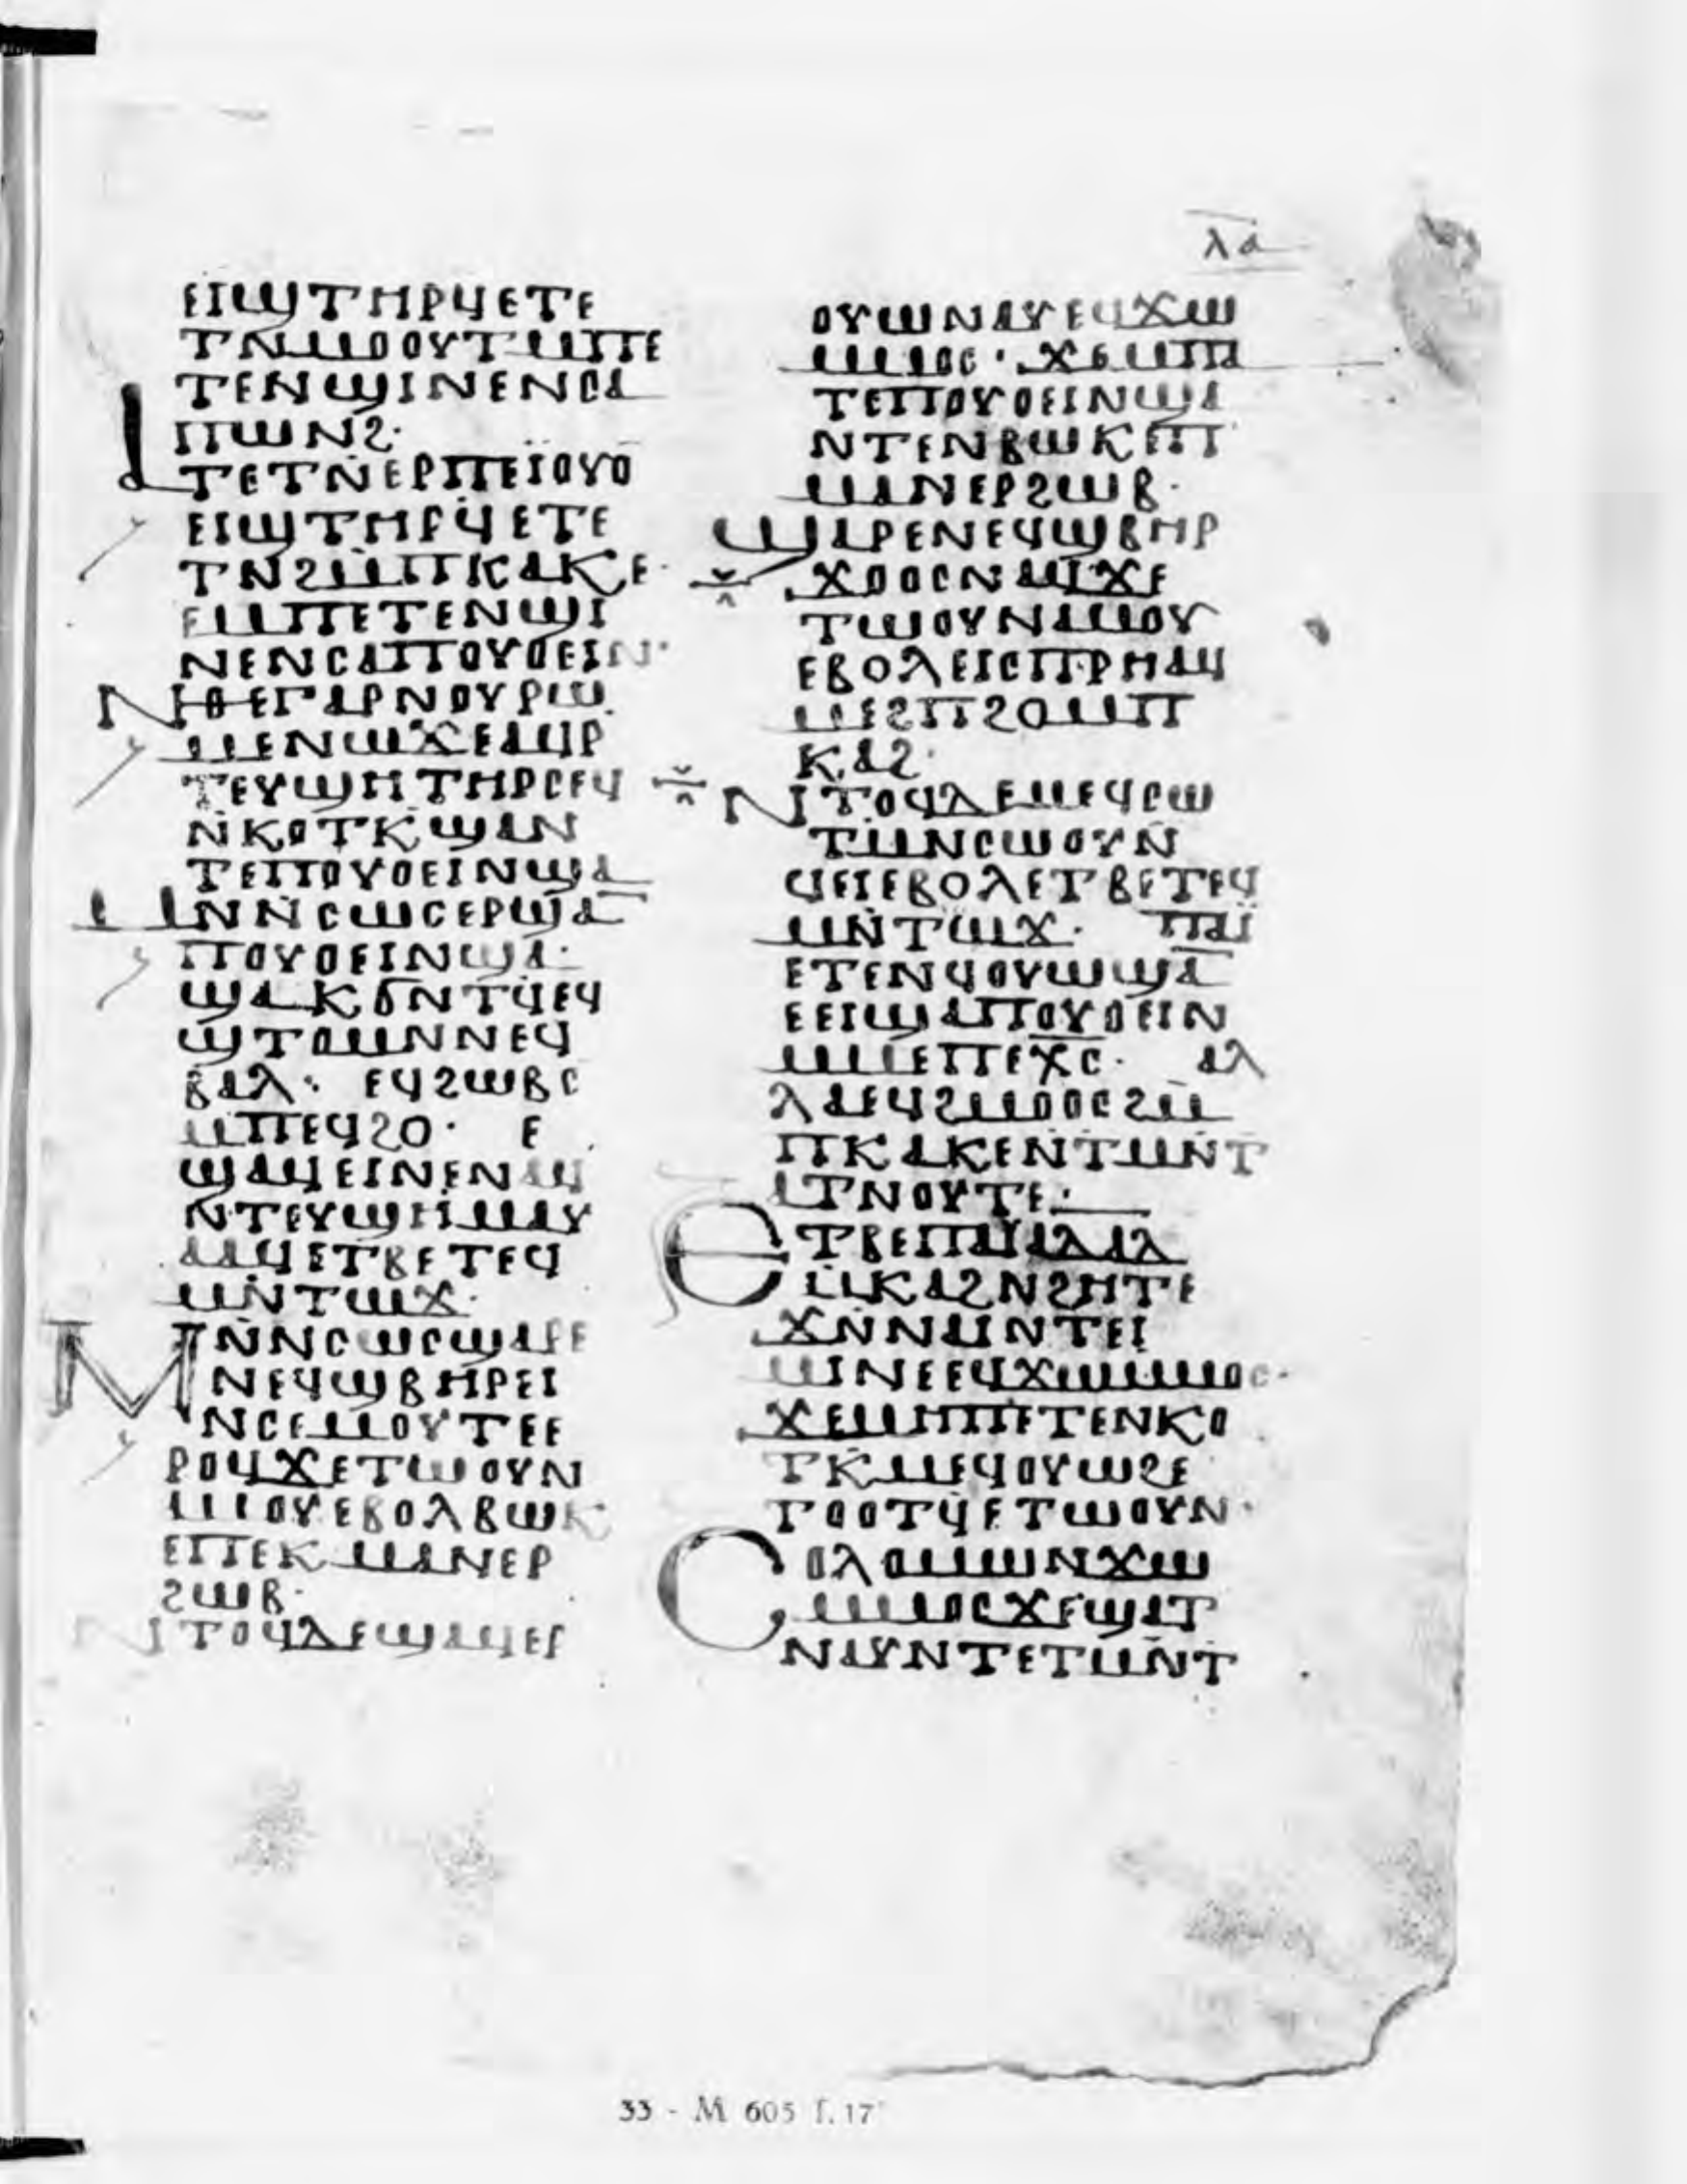 ⲗⲁ
ⲉⲓϣⲧⲏⲣϥⲉⲧⲉ
ⲧⲛⲙⲟⲟⲩⲧⲙⲡⲉ
ⲧⲉⲛϣⲓⲛⲉⲛⲥⲁ
ⲡⲱⲛϩ·
ⲁⲧⲉⲧⲛ̄ⲉⲣⲡⲉⲓ̈ⲟⲩⲟ
ⲉⲓϣⲧⲏⲣϥⲉⲧⲉ
ⲧⲛϩⲙ̄ⲡⲕⲁⲕⲉ·
ⲉⲙⲡⲉⲧⲉⲛϣⲓ
ⲛⲉⲛⲥⲁⲡⲟⲩⲟⲉⲓⲛ·
ⲛⲑⲉⲅⲁⲣⲛⲟⲩⲣⲱ
ⲙⲉⲛϣϫⲉⲁϥⲣ
ⲧⲉⲩϣⲏⲧⲏⲣⲥⲉϥ
ⲛ̄ⲕⲟⲧⲕϣⲁⲛ
ⲧⲉⲡⲟⲩⲟⲉⲓⲛϣⲁ
ⲙⲛⲛ̄ⲥⲱⲥⲉⲣϣⲁ
ⲡⲟⲩⲟⲉⲓⲛϣⲁ·
ϣⲁⲕϭⲛⲧϥⲉϥ
ϣⲧⲟⲙⲛⲛⲉϥ
ⲃⲁⲗ· ⲉϥϩⲱⲃⲥ
ⲙⲡⲉϥϩⲟ· ⲉ
ϣⲁϥⲉⲓⲛⲉⲛⲁϥ
ⲛⲧⲉⲩϣⲏⲙⲁⲩ
ⲁⲁϥⲉⲧⲃⲉⲧⲉϥ
ⲙⲛ̄ⲧϣϫ·
ⲙⲛ̄ⲛⲥⲱⲥϣⲁⲣⲉ
ⲛⲉϥϣⲃⲏⲣⲉⲓ
ⲛⲥⲉⲙⲟⲩⲧⲉⲉ
ⲣⲟϥϫⲉⲧⲱⲟⲩⲛ
ⲙⲟⲩⲉⲃⲟⲗⲃⲱⲕ
ⲉⲡⲉⲕⲙⲁⲛⲉⲣ
ϩⲱⲃ·
ⲛⲧⲟϥⲇⲉϣⲁϥⲉⲣ
ⲟⲩⲱⲛⲁⲩⲉϥϫⲱ
ⲙⲙⲟⲥ· ϫⲉⲙⲡⲁ
ⲧⲉⲡⲟⲩⲟⲉⲓⲛϣⲁ
ⲛⲧⲉⲛⲃⲱⲕⲉⲡ
ⲙⲁⲛⲉⲣϩⲱⲃ·
ϣⲁⲣⲉⲛⲉϥϣⲃⲏⲣ
ϫⲟⲟⲥⲛⲁϥϫⲉ
ⲧⲱⲟⲩⲛⲁⲙⲟⲩ
ⲉⲃⲟⲗⲉⲓⲥⲡⲣⲏⲁϥ
ⲙⲉϩⲡϩⲟⲙⲡ
ⲕⲁϩ·
ⲛⲧⲟϥⲇⲉⲙⲉϥⲥⲱ
ⲧⲙⲛⲥⲱⲟⲩⲛ̄
ϥⲉⲓⲉⲃⲟⲗⲉⲧⲃⲉⲧⲉϥ
ⲙⲛ̄ⲧϣϫ· ⲡⲁⲓ̈
ⲉⲧⲉⲛϥⲟⲩⲱϣⲁ
ⲉⲉⲓϣⲁⲡⲟⲩⲟⲉⲓⲛ
ⲙⲙⲉⲡⲉⲭ̄ⲥ̄· ⲁⲗ
ⲗⲁⲉϥϩⲙⲟⲟⲥϩⲙ̄
ⲡⲕⲁⲕⲉⲛ̄ⲧⲙⲛ̄ⲧ
ⲁⲧⲛⲟⲩⲧⲉ·
ⲉⲧⲃⲉⲡⲁⲓⲇⲁⲇ
ⲙⲕⲁϩⲛϩⲏⲧⲉ
ϫⲛ̄ⲛⲁⲓⲛⲧⲉⲓ
ⲙⲓⲛⲉⲉϥϫⲱⲙⲙⲟⲥ·
ϫⲉⲙⲏⲡⲉⲧⲉⲛⲕⲟ
ⲧⲕ̄ⲙⲉϥⲟⲩⲱϩⲉ
ⲧⲟⲟⲧϥⲉⲧⲱⲟⲩⲛ·
ⲥⲟⲗⲟⲙⲱⲛϫⲱ
ⲙⲙⲟⲥϫⲉϣⲁⲧ
ⲛⲁⲩⲛⲧⲉⲧⲙⲛ̄ⲧ
33 - M 605 f. 17